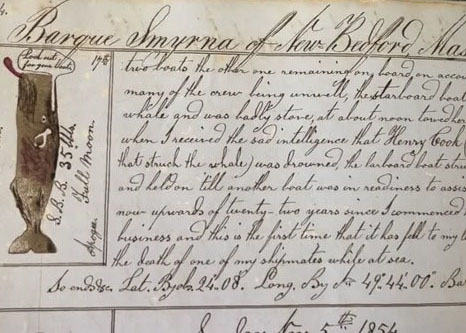 4.
Barque Smyrna of New Bedford, Mas
Look out
for your boats
17th
S.B.B. 35 bbls
Full Moon.
Apogee.
two boats the other one remaining on board on accou
many of the crew being unwell, the starboard boat
whale and was badly stove, at about noon lowed her
when I received the sad intelligence that Henry Cook (
that struck the whale) was drowned, the larboard boat stru
and held on 'till another boat was in readiness to assis
now upwards of twenty-two years since I commenced
business and this is the first time that it has fell to my l
the death of one of my shipmates while at sea.
So ends &c. Lat. By obs. 24.08. Long. By 49.44.00" Bar
5th 1854